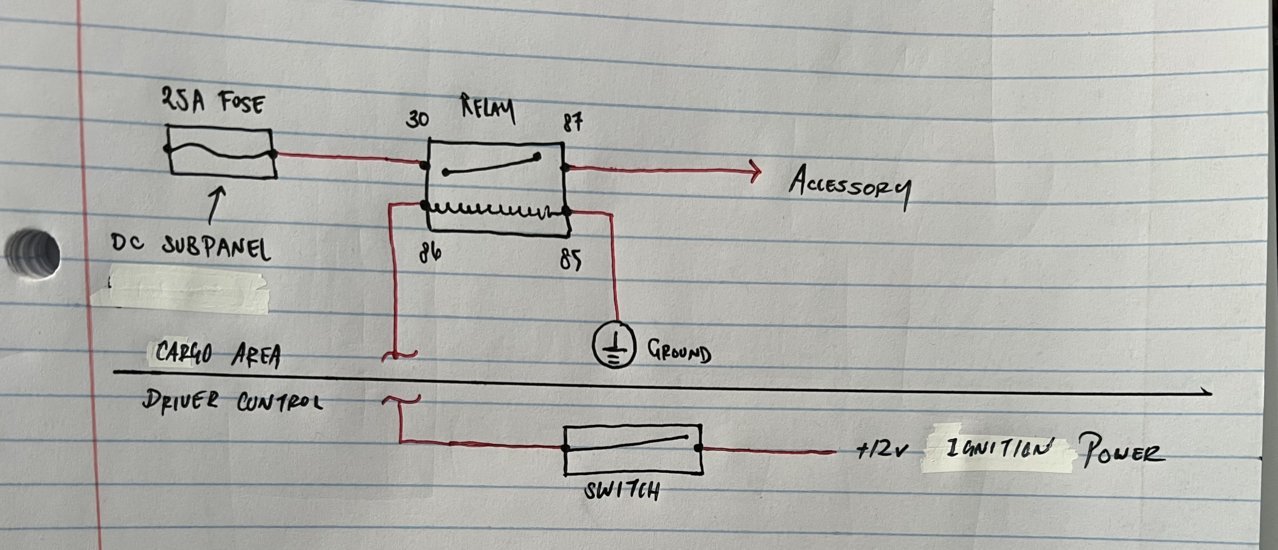 25A FUSE
30
RELAY
87
ACCESSORY
DC SUBPANEL
86
85
GROUND
CARGO AREA
DRIVER CONTROL
+12v IGNITION POWER
SWITCH